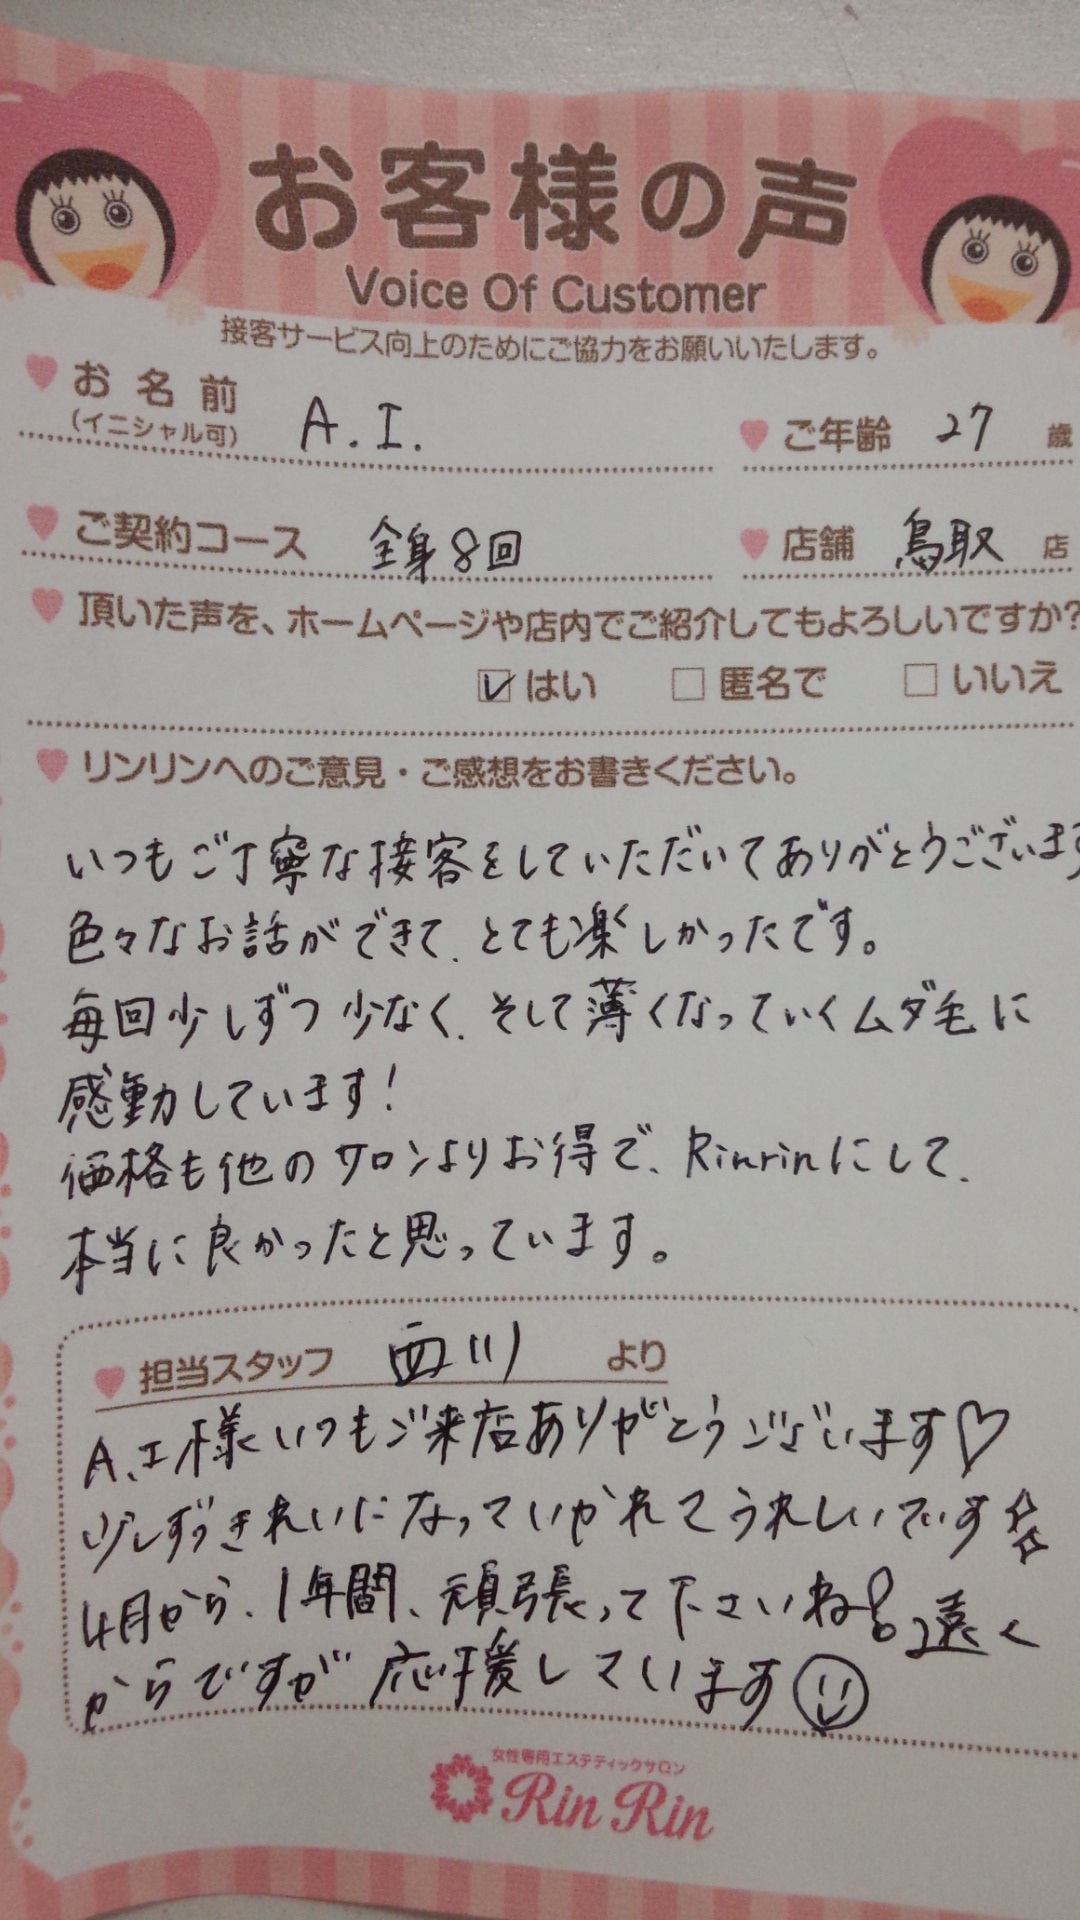 お客様の声
Voice Of Customer
接客サービス向上のためにご協力をお願いいたします。
お名前 A.I. ご年齢 27 歳
(イニシャル可)
ご契約コース 全身8回 店舗 鳥取 店
頂いた声を、ホームページや店内でご紹介してもよろしいですか?
はい 匿名で いいえ
リンリンへのご意見・ご感想をお書きください。
いつもご丁寧な接客をしていただいてありがとうございます
色々なお話ができて、とても楽しかったです。
毎回少しずつ少なく、そして薄くなっていくムダ毛に
感動しています!
価格も他のサロンよりお得で、Rinrinにして、
本当に良かったと思っています。
担当スタッフ 西川 より
A.I様いつもご来店ありがとうございます♡
少しずつきれいになっていかれてうれしいです☆☆
4月から、1年間、頑張って下さいね!遠く
からですが応援しています
女性専用エステティックサロン
Rin Rin